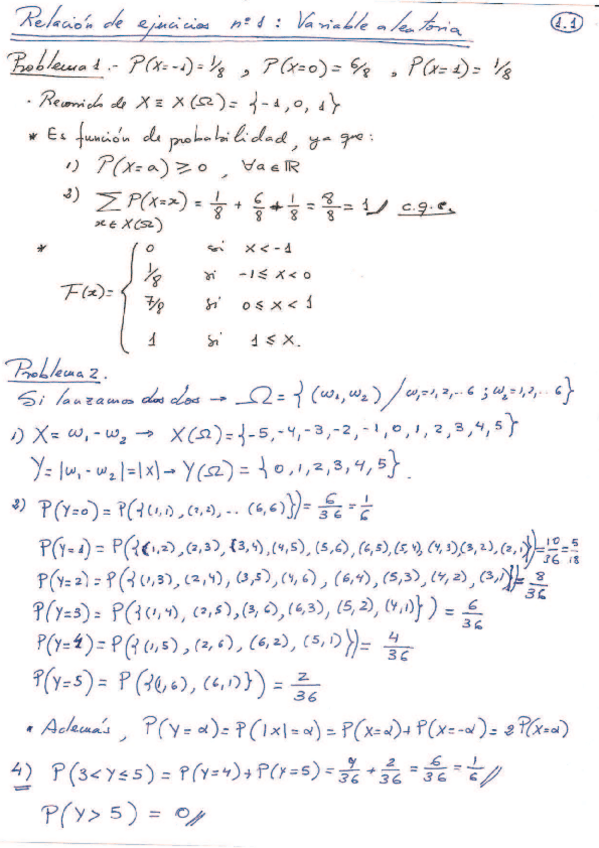 Relación de ejercicios nº 1: Variable aleatoria 1.1
Problema 1.- P(X=-1)=1/8 , P(X=0)=6/8 , P(X=1)=1/8
· Recorrido de X ≡ X(Ω) = {-1, 0, 1}
* Es función de probabilidad, ya que:
1) P(X=a) ≥ 0 , ∀a∈ℝ
2) ∑ P(X=x) = 1/8 + 6/8 + 1/8 = 8/8 = 1 // c.q.e.
x∈X(Ω)
* F(x) = {
0 si x < -1
1/8 si -1 ≤ x < 0
7/8 si 0 ≤ x < 1
1 si 1 ≤ x.
Problema 2.
Si lanzamos dos dados → Ω = {(ω₁, ω₂) / ω₁=1,2,..6 ; ω₂=1,2,..6}
1) X = ω₁ - ω₂ → X(Ω) = {-5, -4, -3, -2, -1, 0, 1, 2, 3, 4, 5}
Y = |ω₁ - ω₂| = |X| → Y(Ω) = {0, 1, 2, 3, 4, 5}.
2) P(Y=0) = P({(1,1), (2,2), ... (6,6)}) = 6/36 = 1/6
P(Y=1) = P({(1,2), (2,3), (3,4), (4,5), (5,6), (6,5), (5,4), (4,3), (3,2), (2,1)}) = 10/36 = 5/18
P(Y=2) = P({(1,3), (2,4), (3,5), (4,6), (6,4), (5,3), (4,2), (3,1)}) = 8/36
P(Y=3) = P({(1,4), (2,5), (3,6), (6,3), (5,2), (4,1)}) = 6/36
P(Y=4) = P({(1,5), (2,6), (6,2), (5,1)}) = 4/36
P(Y=5) = P({(1,6), (6,1)}) = 2/36
· Además, P(Y=a) = P(|X|=a) = P(X=a) + P(X=-a) = 2P(X=a)
4) P(3<Y≤5) = P(Y=4) + P(Y=5) = 4/36 + 2/36 = 6/36 = 1/6 //
P(Y>5) = 0 //